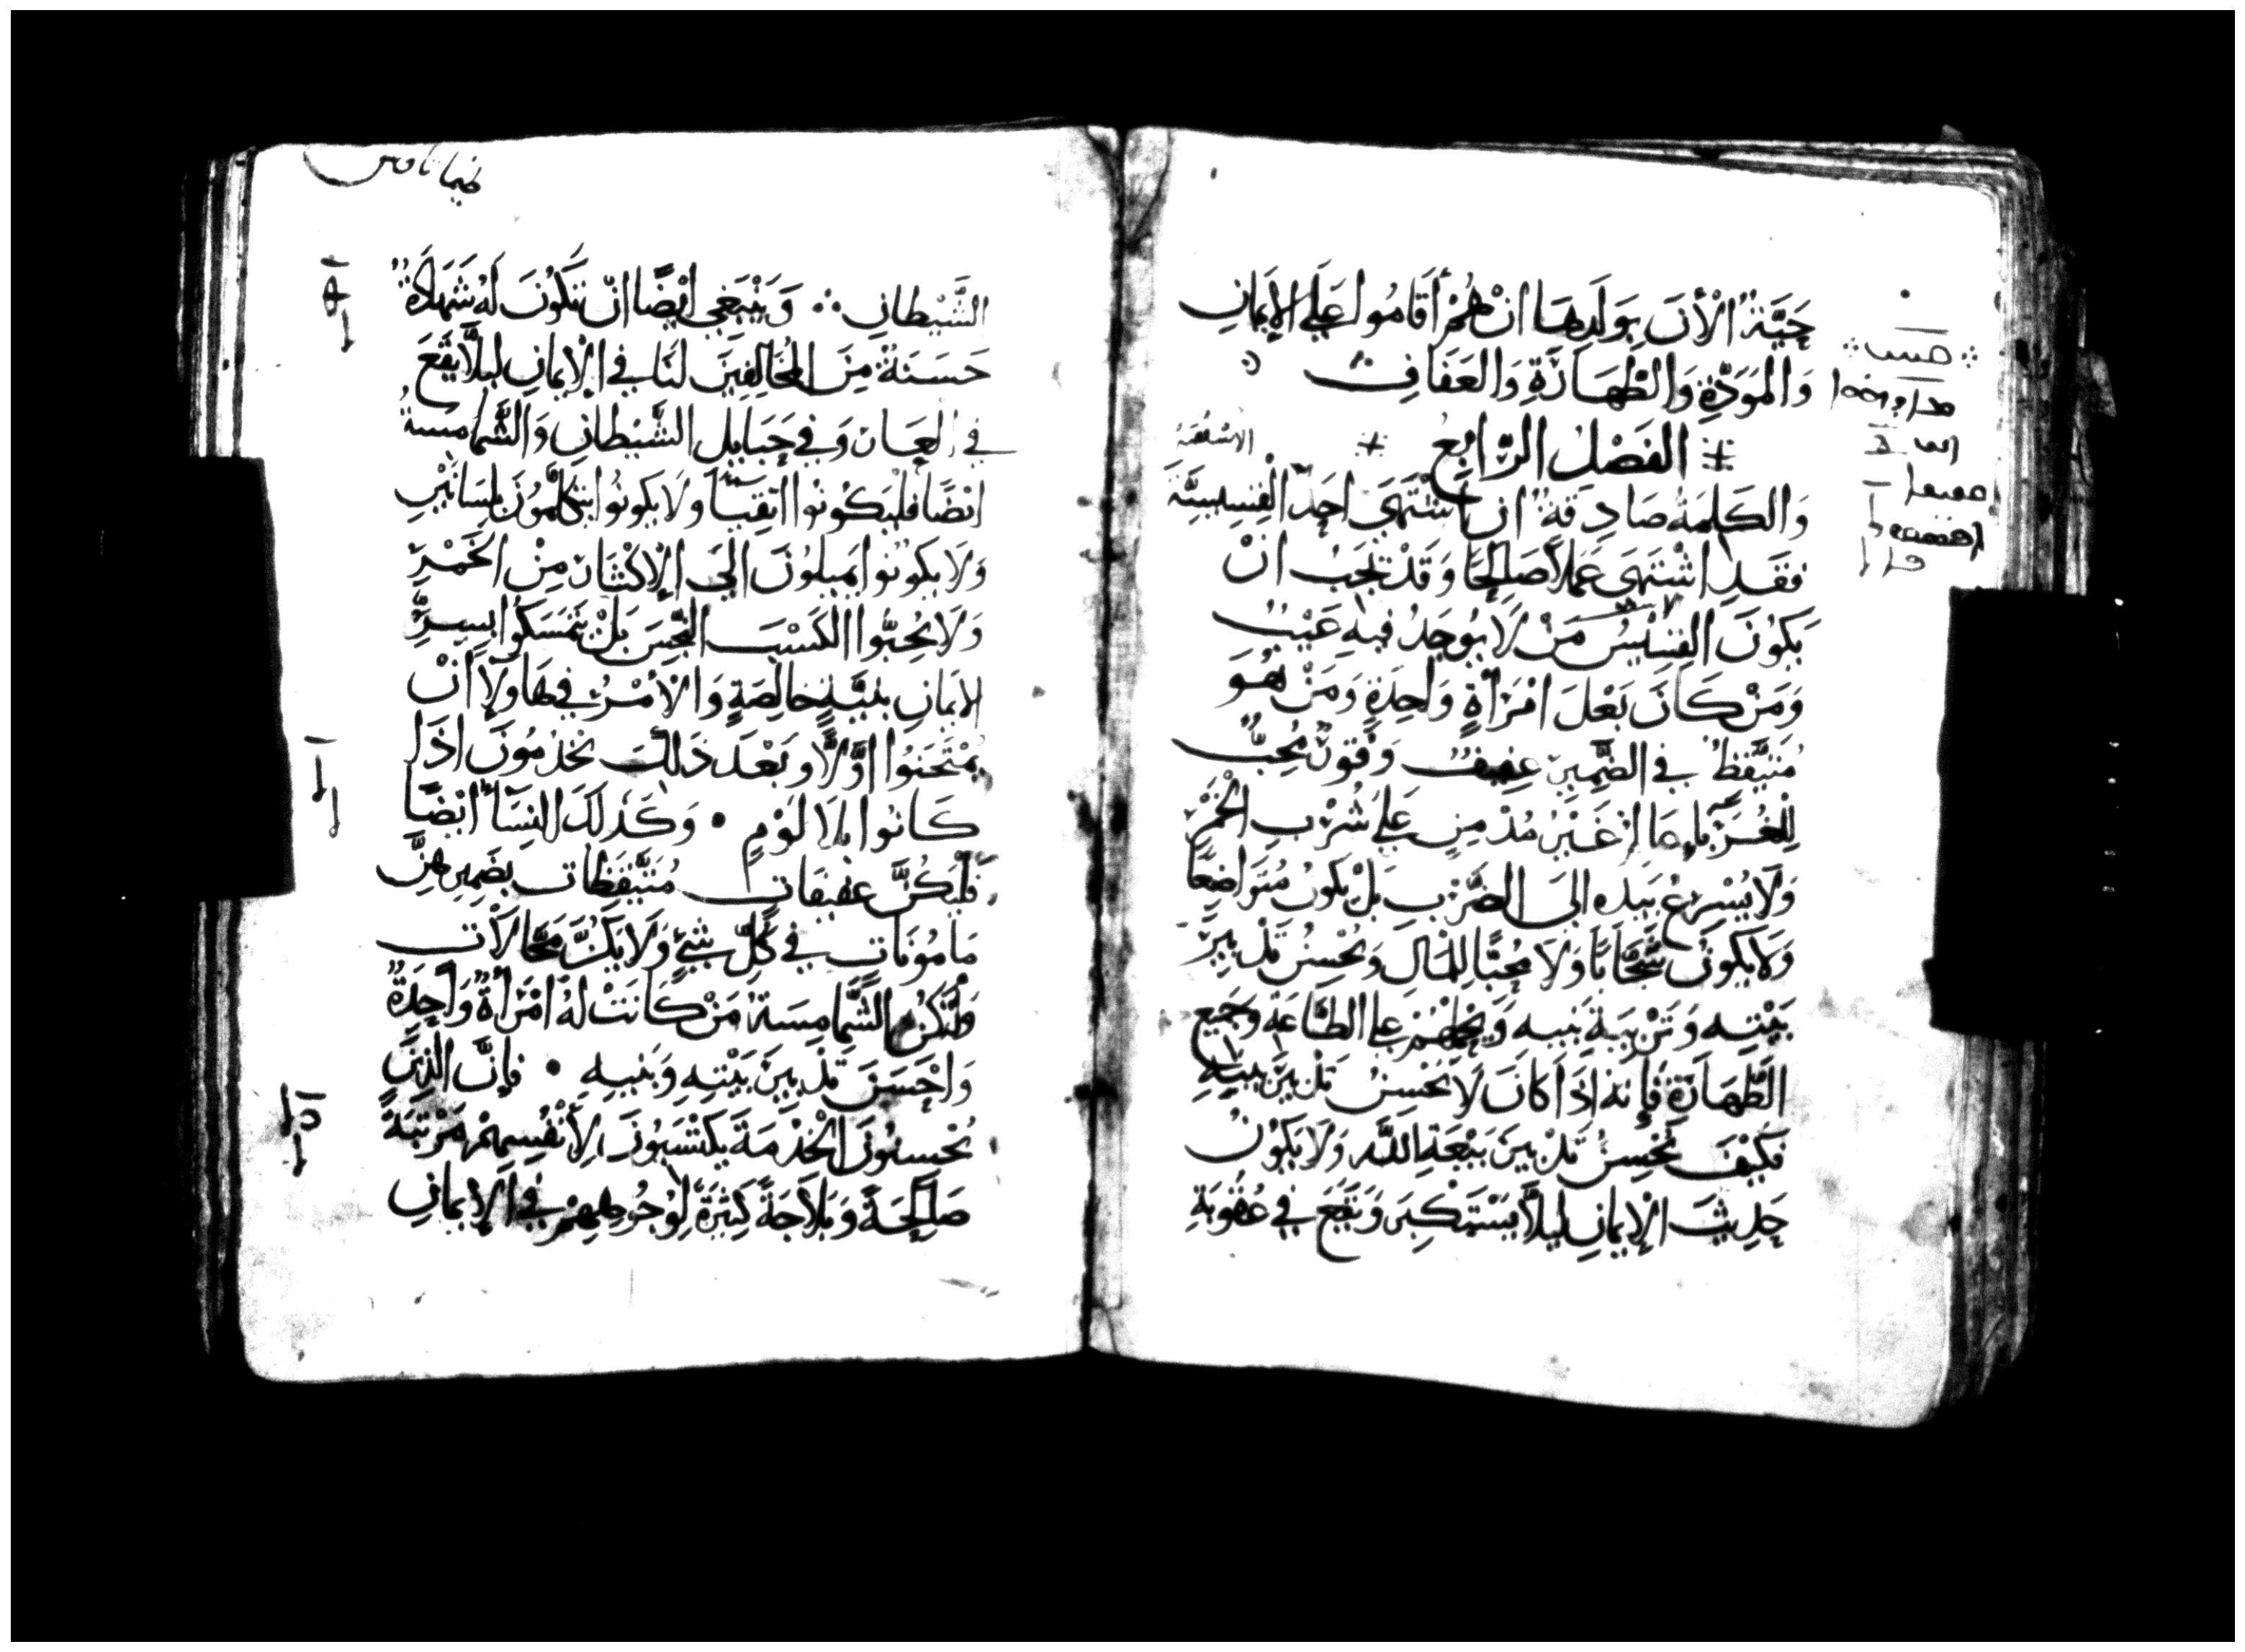 حَيَّةٌ الْأَنَ بِوَلَدِهَا انْ هُمْ أَقَامُوا عَلَى الإِيمَانِ
وَالمَوَدَّةِ وَالطَّهَارَةِ وَالعَفَافِ
الفَصْلُ الرَّابِعُ
وَالكَلِمَةُ صَادِقَةٌ ان اشْتَهَى احَدٌ الْقِسِيسِيَّةَ
فَقَدِ اشْتَهَى عَمَلاً صَالِحًا وَقَدْ يَجَبُ انْ
يَكُونَ القِسِّيْسُ مَنْ لَا يُوجَدُ فيهِ عَيْبٌ
وَمَنْ كَانَ بَعْلَ امْرَأَةٍ وَاحِدَةٍ وَمَنْ هُوَ
مُتَيَقِّظٌ في الضَّمِيرِ عفيفٌ وَقورٌ مُحِبٌّ
لِلغُرَبَاءِ عَالِمٌ غَيْرُ مُدْمِنٍ عَلَى شُرْبِ الْخَمْرِ
وَلَا يُسْرِعُ بِيَدِه الَى الضَّرْبِ بَلْ يَكُونُ مُتَوَاضِعًا
وَلَا يَكُونُ سَخَّابًا وَلَا مُحِبًّا لِلْمَالِ وَيُحْسِنُ تَدْبِيرَ
بَيْتِهِ وَتَرْبِيَةَ بَنِيهِ وَيَحْمِلُهُمْ عَلى الطَّاعَةِ وَجَمِيعِ
الطَّهَارَةِ فَإِنهُ اذَا كَانَ لَا يُحْسِنُ تَدْبِيرَ بيتِهِ
فَكَيْفَ يُحْسِنُ تَدْبِيرَ بَيْعَةِ اللَّهِ وَلَا يَكُونُ
حَدِيثَ الْإِيمَانِ لِيَلَّا يَسْتَكْبِرَ وَيَقَعَ فِي عُقُوبَةِ
الشَّيْطانِ وَيَنْبَغِي ايْضًا انْ تَكُونَ لَهُ شَهَادَةٌ
حَسَنَةٌ مِنَ المُخَالِفِينَ لَنَا في الْإيمانِ لِيَلَّا يَقَعَ
في العَارِ وَفي حَبَايِلِ الشَّيْطانِ وَالشَّمامسةُ
ايْضًا فَلْيَكُونُوا اتقِيَآ وَلَا يَكُونُوا يَتَكَلَّمُونَ بِلِسَانَيْنِ
وَلَا يَكُونُوا يَميلُونَ الَى الْإكْثَارِ مِنْ الخَمْرِ
وَلَا يُحِبُّوا الكَسْبَ النَّجِسَ بَلْ يَتَمَسَكُوا بِسِرِّ
الإيمَانِ بِنِيَّةٍ خَالِصَةٍ وَالْأَمْرُ في هَاوُلَآ انْ
يُمْتَحَنُوا اوَّلًا وَبَعْدَ ذَلِكَ يَخْدُمُونَ اذَا
كَانُوا بِلَا لَوْمٍ • وَكَذَلِكَ النِسَآءُ ايْضًا
فَلْيَكُنَّ عَفيفَاتٍ مُتَيَقِّظَاتٍ بِضَمِيرِهِنَّ
مَامُونَاتٍ في كُلِّ شَيْءٍ وَلَا يَكُنَّ مَحَّالَاتٍ
وَلْتَكُنِ الشَّمَامِسَةُ مَنْ كَانَتْ لهُ امْرَأةٌ وَاحِدَةٌ
وَاحْسَنَ تَدْبِيرَ بَيْتِهِ وَبَنيهِ • فَإِنَّ الذِينَ
يُحْسِنُونَ الْخِدْمَةَ يَكتَسِبُونَ لِأَنْفُسِهِمْ مَرْتَبَةً
صَالِحَةً وَبَلَاجَةً كَثِيرَةً لِوُجُوهِهِمْ في الْإِيمَانِ